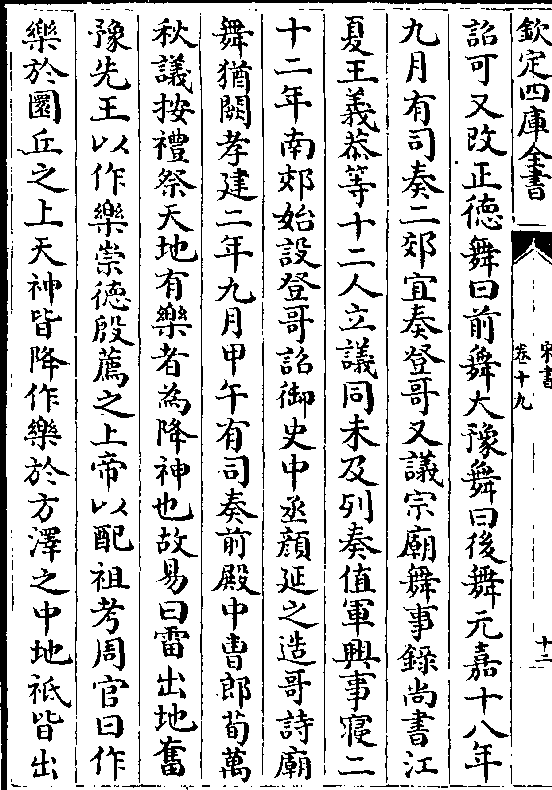 欽定四庫全書
宋書
卷十九
十二
詔可又改正徳舞曰前舞大豫舞曰後舞元嘉十八年
九月有司奏二郊宜奏登哥又議宗廟舞事錄尚書江
夏王義恭等十二人立議同未及列奏值軍興事寢二
十二年南郊始設登哥詔御史中丞顔延之造哥詩廟
舞猶闕孝建二年九月甲午有司奏前殿中曹郎荀萬
秋議按禮祭天地有樂者為降神也故易曰雷出地奮
豫先王以作樂崇徳殷薦之上帝以配祖考周官曰作
樂於圜丘之上天神皆降作樂於方澤之中地祇皆出